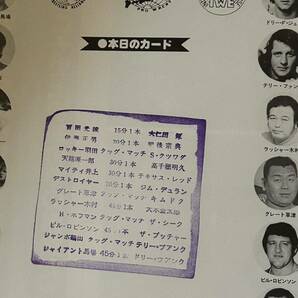 IWE
●本日のカード
百田光雄 15分1本 大仁田 厚
伊藤正男 20分1本 肥後宗典
ロッキー羽田 タッグ・マッチ S・クツワダ
天龍源一郎 30分1本 高千穂明久
マイティ井上 30分1本 テキサス・レッド
デストロイヤー ジム・デュラン
グレート草津 タッグ・マッチ キム・ドク
ラッシャー木村 45分1本 大木金太郎
H・ホフマン タッグ・マッチ ザ・シーク
ビル・ロビンソン 45分1本 ザ・ブッチャー
ジャンボ鶴田 タッグ・マッチ テリー・ファンク
ジャイアント馬場 45分1本 ドリー・ファンク
ドリー・F・ジュ
テリー・ファン
ラッシャー木村
グレート草津
ビル・ロビンソン